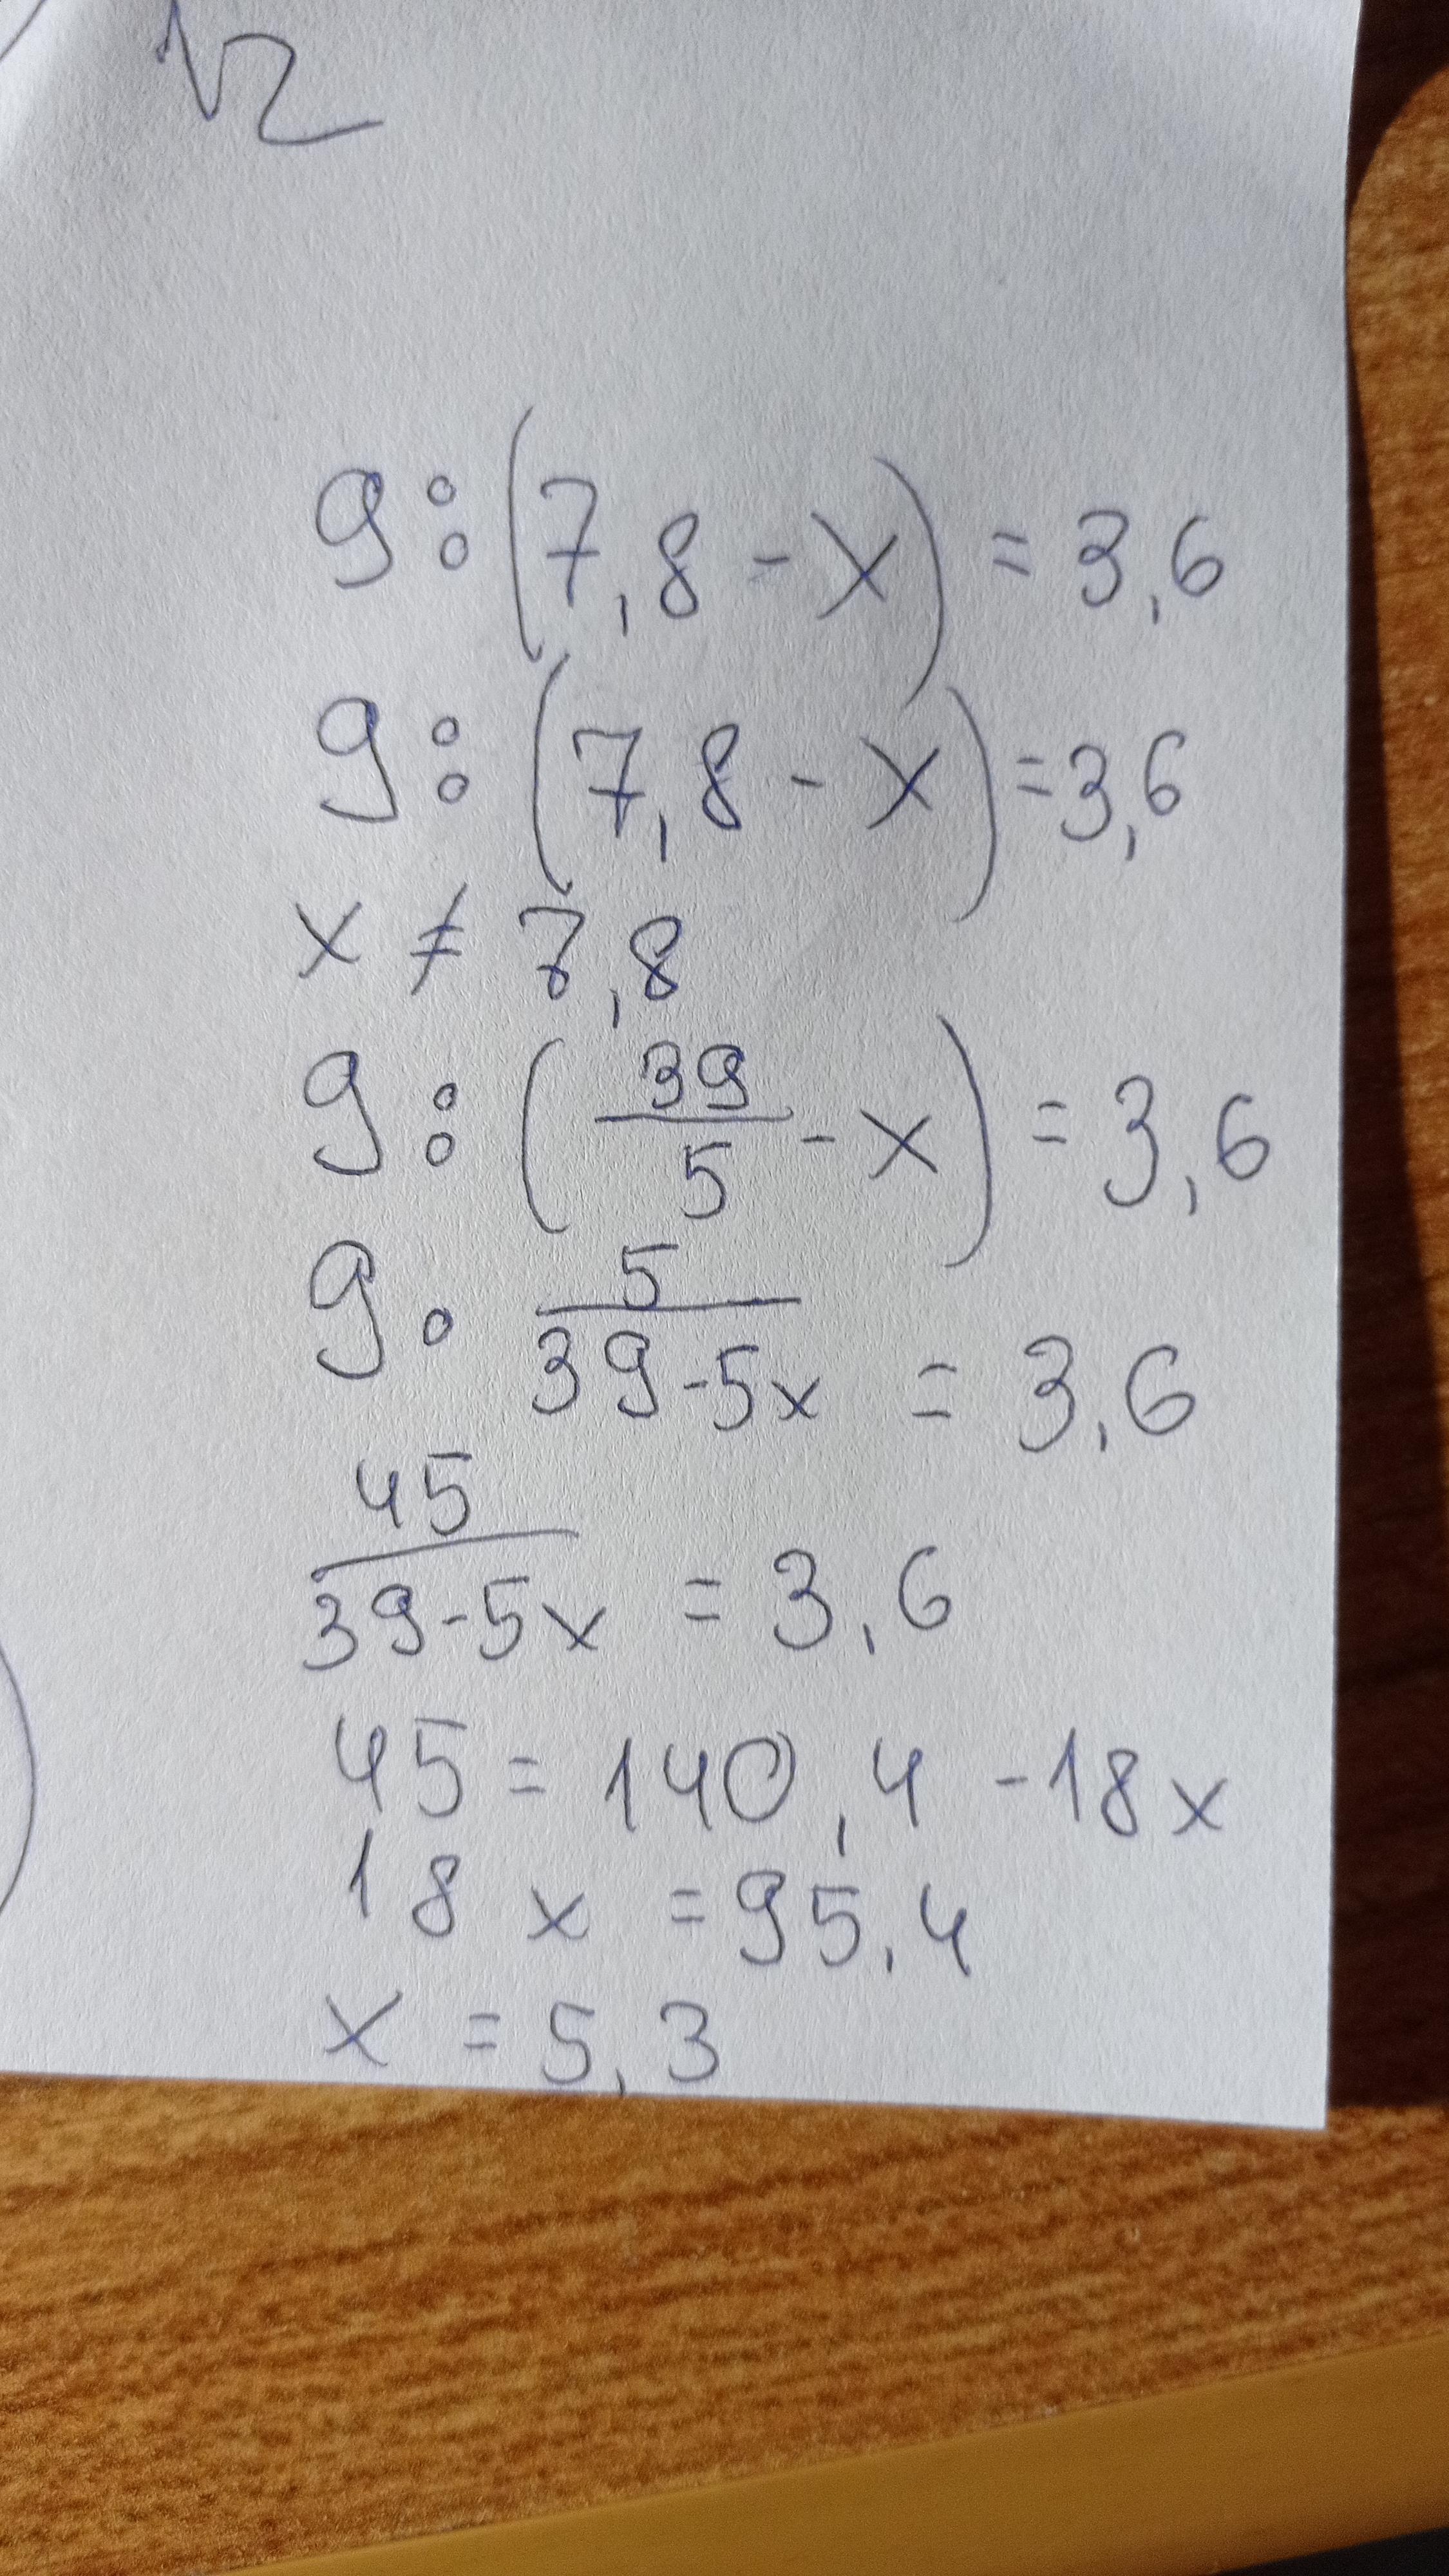 √2
9:(7,8-x)=3,6
9:(7,8-x)=3,6
x≠7,8
9:(39/5-x)=3,6
9·5/(39-5x)=3,6
45/(39-5x)=3,6
45=140,4-18x
18x=95,4
x=5,3